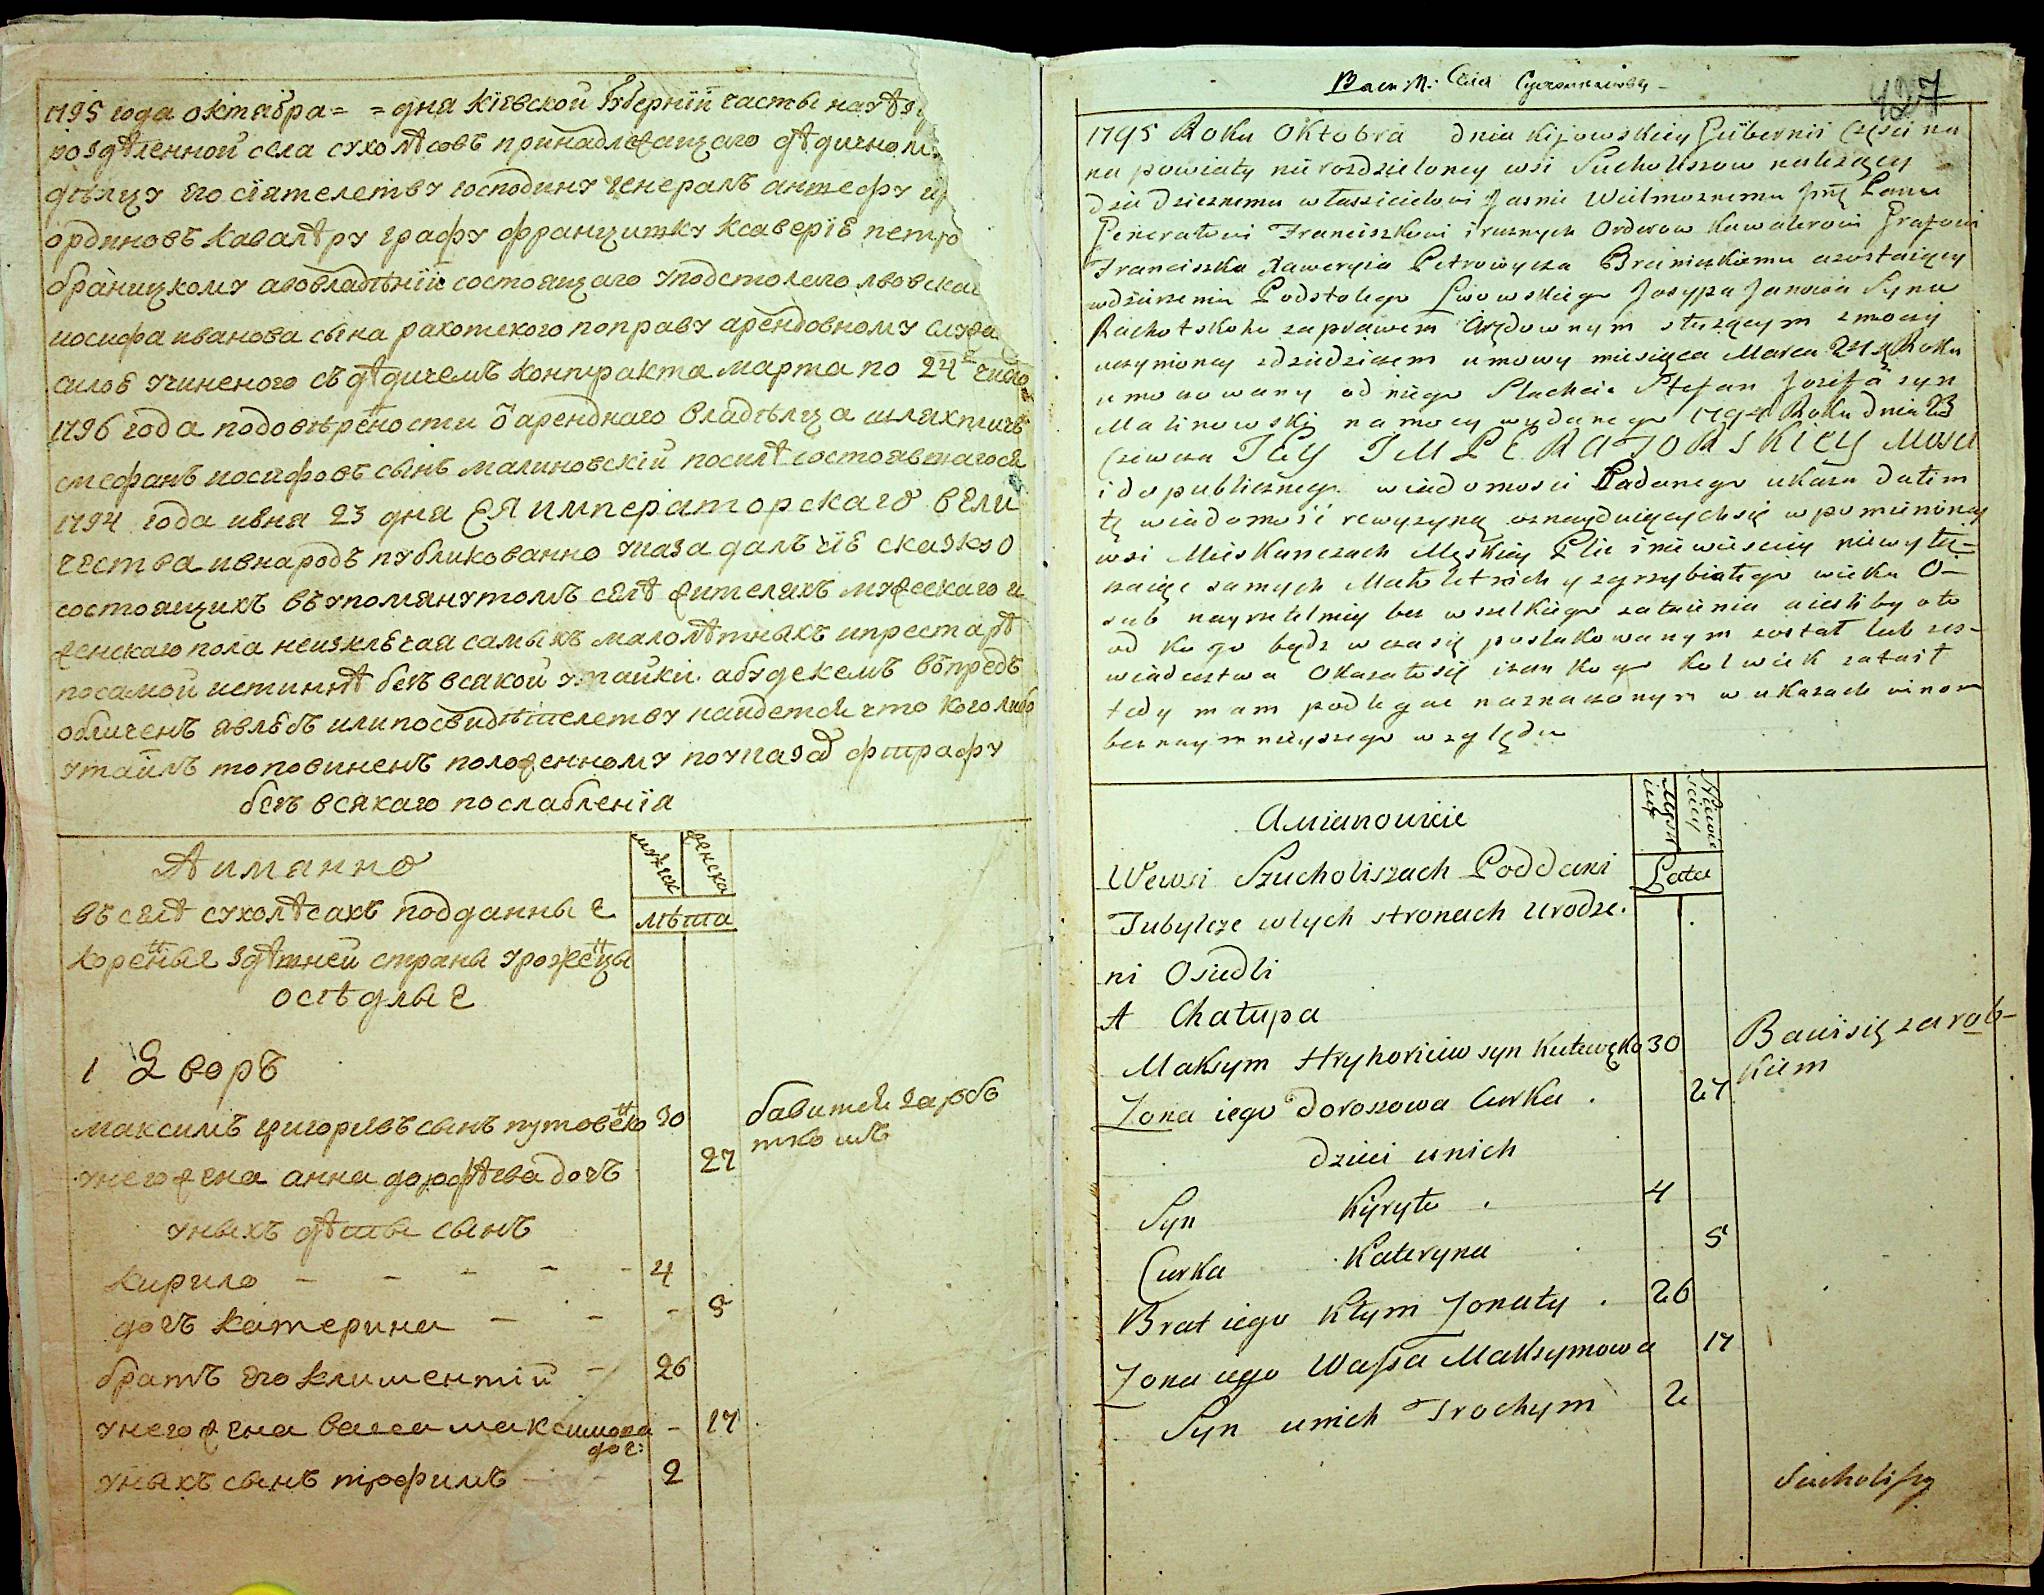 1795 года октабра = = дня кіевской Губерніи часты на уѣз
розделенной села сухолѣсовъ принадлежащаго дѣдичном
дѣлцу его сіятелству господину генералъ аншефу и
ординовъ кавалѣру графу францишку ксаверіе петро
браницкому а вовладѣніи состоящаго уподстолего лвовска
иосифа иванова сына рахотского поправу арендовному
силое учиненого съ дѣдичемъ контракта марта по 24е число
1796 года подовѣрености ѿ арендnаго владѣлца шляхтичъ
стефанъ иосифовъ сынъ малиновскій посилѣ состоявшагося
1794 года июня 23 дня ея императорскаго вели
чества ивнародъ публикованно указа далъ сіе сказку о
состоящихъ въ упомянутомъ селѣ жителяхъ мужескаго и
женскаго пола неизключая самыхъ малолѣтныхъ ипрестарѣ
посамой истиннѣ безъ всякой утайки. абуде кемъ впредъ
обличенъ явлюсь илипосвидѣтелству наидется что кого либо
утаилъ то повиненъ положенному по указаѡ штрафу
безъ всякаго послабленія
А иманно
въ селѣ сухолѣсахъ подданные
кореные здѣшней страны уроженцы
осѣдлые
мужеск
женска
лѣта
1 Дворъ
максимъ григоріевъ сынъ кутовенко 30
унего жена анна дорофѣева дочъ 27
бавится заробо
ткомъ
уныхъ дѣты сынъ
кирило - - - - - 4
дочъ катерина - - - 5
братъ его климентій - 26
унего жена васса максимова доч: - 17
уныхъ сынъ трофимъ - - 2
427
1795 Roku Oktobra dnia kijowskiey Gubernii części na
na powiaty nie rozdzieloney wsi Sucholissow należący
dziedzicznemu właszicielowi Jasnie Wielmoznemu Jmę Panu
Generałowi Franciszkowi i roznych Orderow Kawalerowi Grafowi
Franciszku Xaweryia Petrowycza Braniczkiemu a zostaiący
wdzierzeniu Podstolego Lwowskiego Josypa Janowa Syna
Rachotskoho za prawem Arędownym służącym z mocy
uczynioney zdziedzicem umowy miesiąca Marca 24 Roku
umocowany od niego Slachcic Stefan Jozifa syn
Malinowski na mocy wydanego 1794 Roku dnia 23
Czerwca JEY IMPERATORSKIEY Mosci
i do publiczney wiadomosci Podanego ukazu dałem
tę wiadomosć rewyzyiną oznayduiącychsię w pomienioney
wsi Mieskanczach Męskiey Płci i niewiesciey niewyłą-
czaiąc samych Małoletnich y zgrzybiałego wieku O-
sub nayrzetelniey bez wszelkiego zataienia a iesliby oto
od kogo będz w czasię poszlakowanym został lub zes-
wiadcztwa Okazałosię izem kogo kolwiek zataił
tedy mam podlegac naznaczonym w ukazach winom
bez naymnieyszego względu
A mianowicie
Męski
Niewiesciey
Lata
We wsi Szucholiszach Poddani
Tubylcze wtych stronach Urodze.
ni Osiedli
A Chałupa
Maksym Hryhoriiow syn Kutowęko 30
Żona iego Doroszowa Curka . 27
Bawi się zarob-
kiem
dzieci unich
Syn Kyryło . 4
Curka Kateryna . 5
Brat iego Kłym Żonaty . 26
Żona iego Wassa Maksymowa 17
Syn unich Trochym 2
Sucholissy